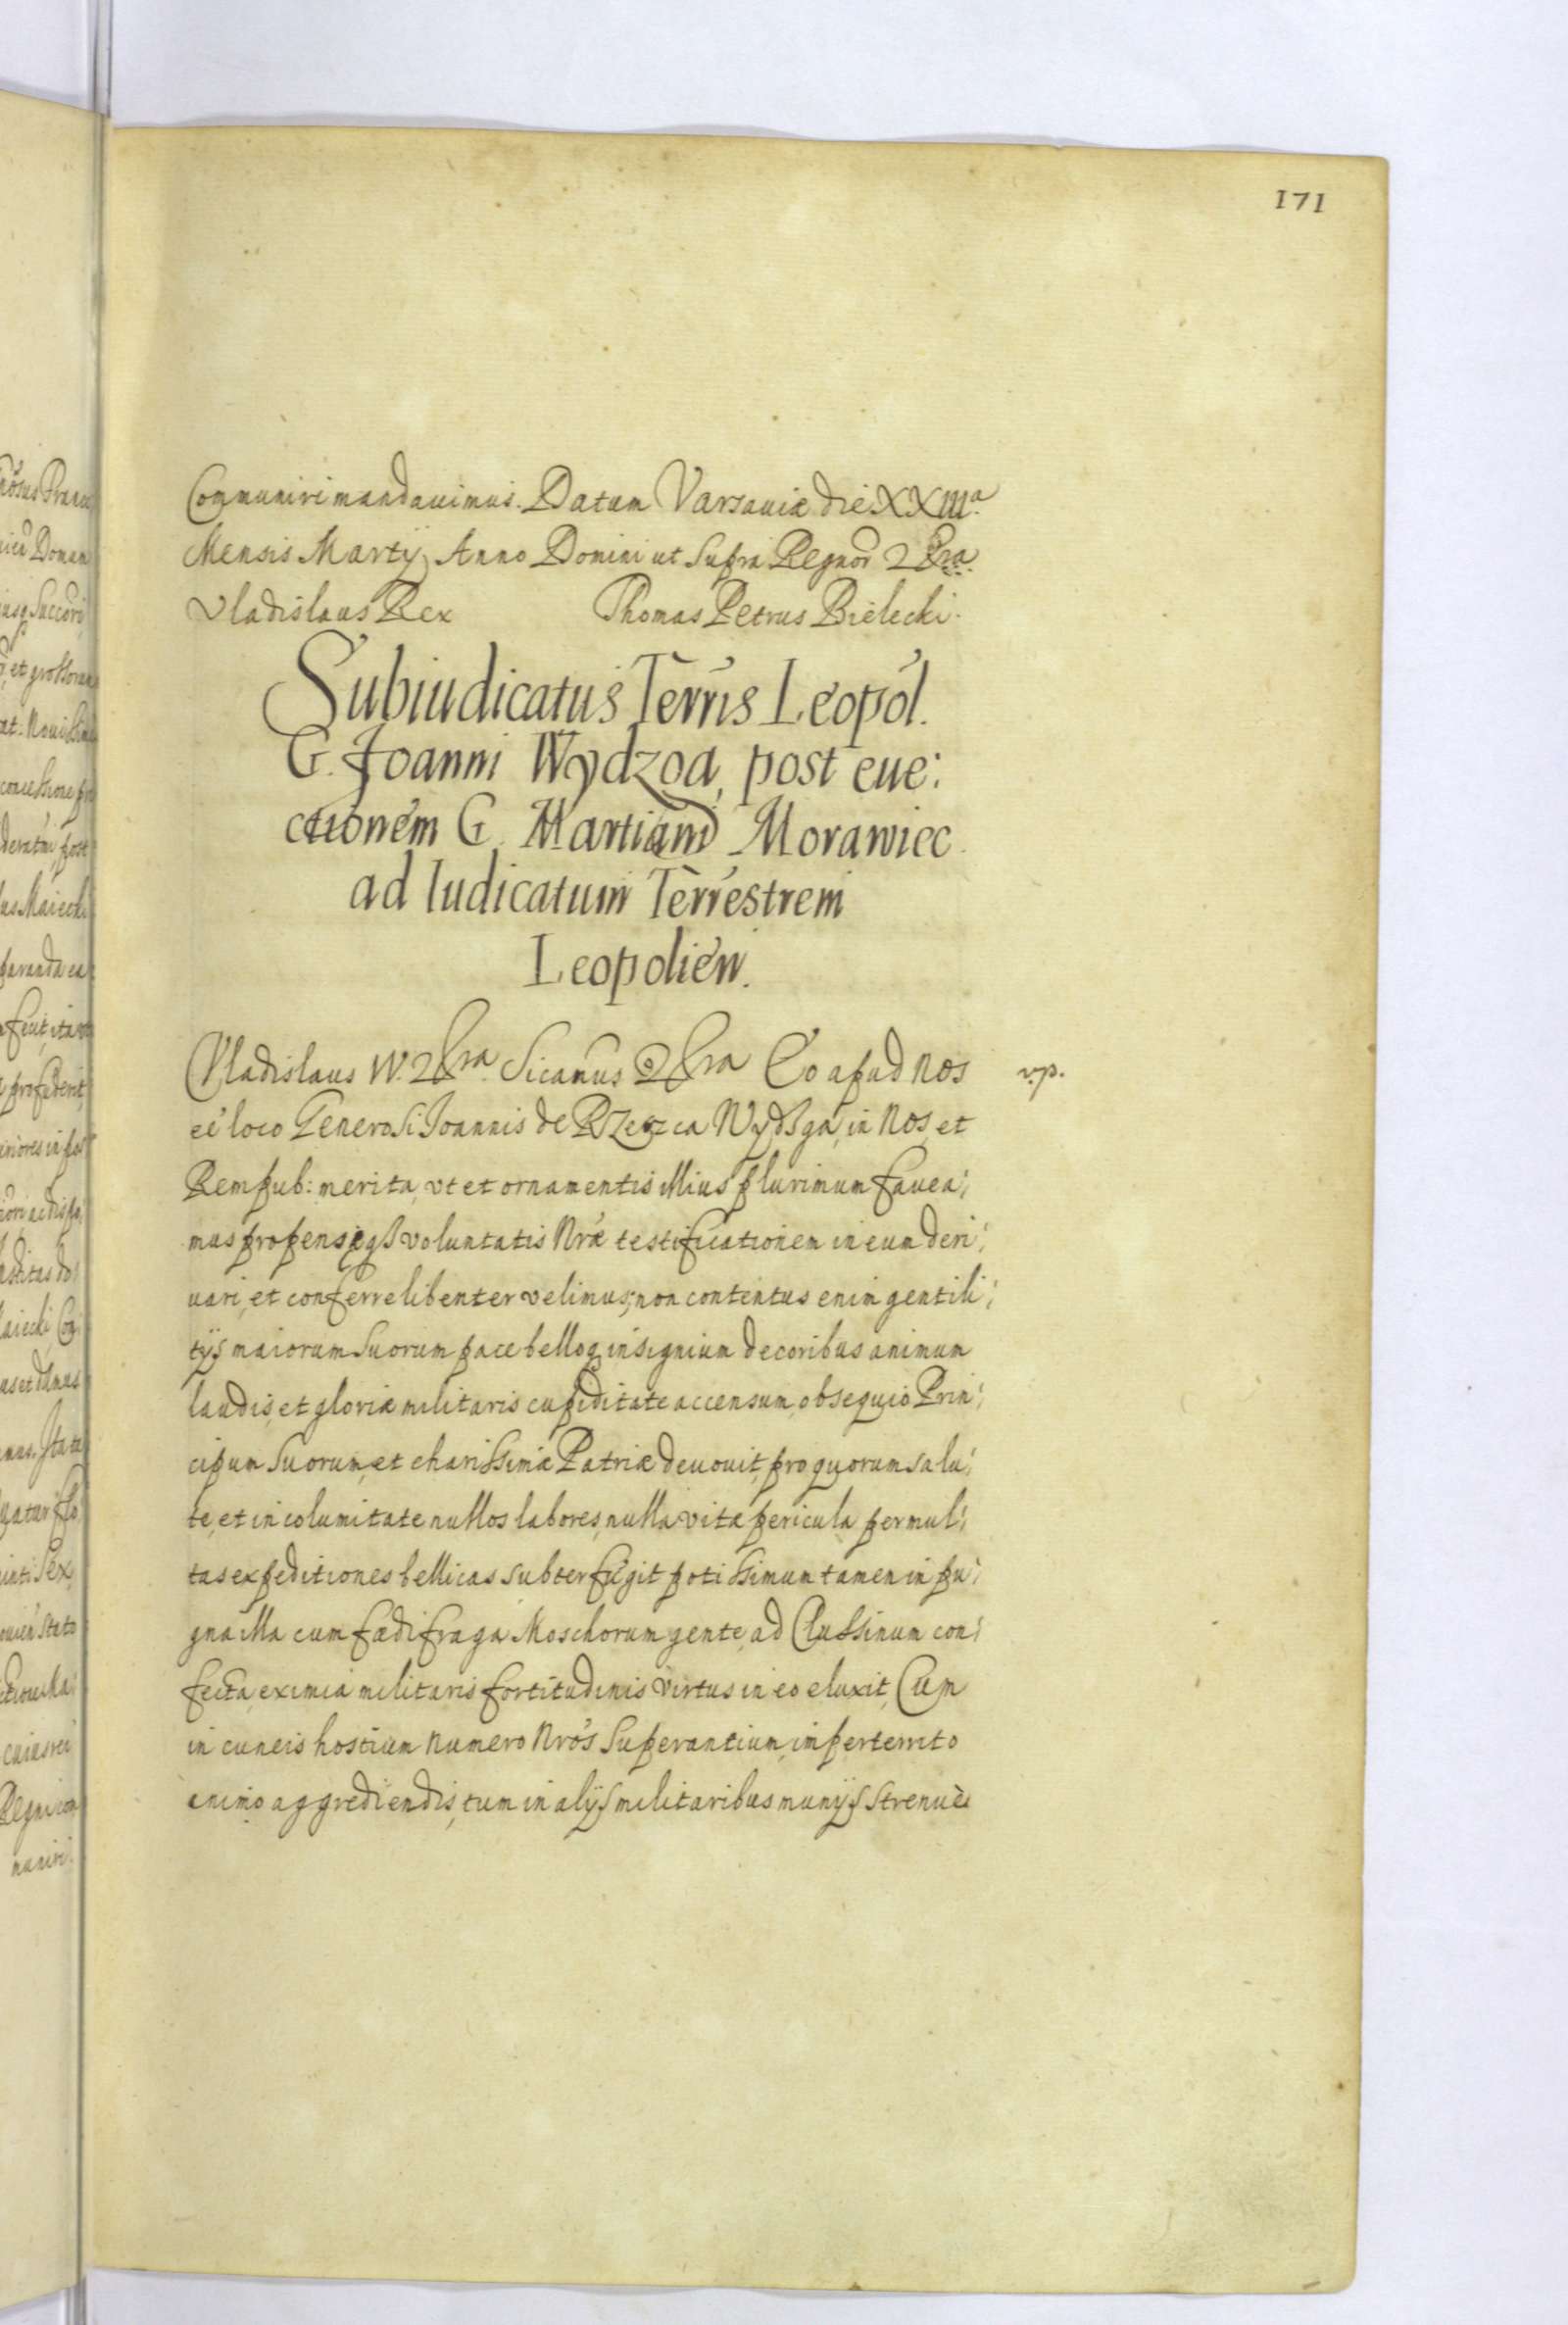 171
Communiri mandauimus. Datum Varsauiæ die XXIIIa.
Mensis Martij Anno Domini ut Supra Regnor 2 &ra.
Vladislaus Rex Thomas Petrus Bielecki.
Subiudicatus Terris Leopol.
G. Joanni Wydzga, post eue:
ctionem G. Martiani Morawiec
ad Iudicatum Terrestrem
Leopolien.
Vladislaus IV. 2&ra. Sicanus 2&ra Eo apud nos v.p.
eé loco Generosi Joannis de Rzeczca Wydsga, in Nos, et
Rempub: merita, vt et ornamentis illius plurimum fauea:
mus propensięqȝ voluntatis Nræ testificationem in eum deri:
uari, et conferre libenter velimus; non contentus enim gentili:
tijs maiorum Suorum pace belloqȝ insignium decoribus animum
laudis, et gloriæ militaris cupiditate accensum, obsequio Prin:
cipum Suorum, et charissimæ Patriæ deuouit, pro quorum salu:
te, et incolumitate nullos labores, nulla vitæ pericula per mul:
tas expeditiones bellicas subterfugit potissimum tamen in pu:
gna illa cum fædifraga Moschorum gente, ad Clussinum con:
fecta, eximia militaris fortitudinis virtus in eo eluxit, Cum
in cuneis hostium numero Nros Superantium, imperterrito
animo aggrediendis, tum in alijs militaribus munijs strenuè